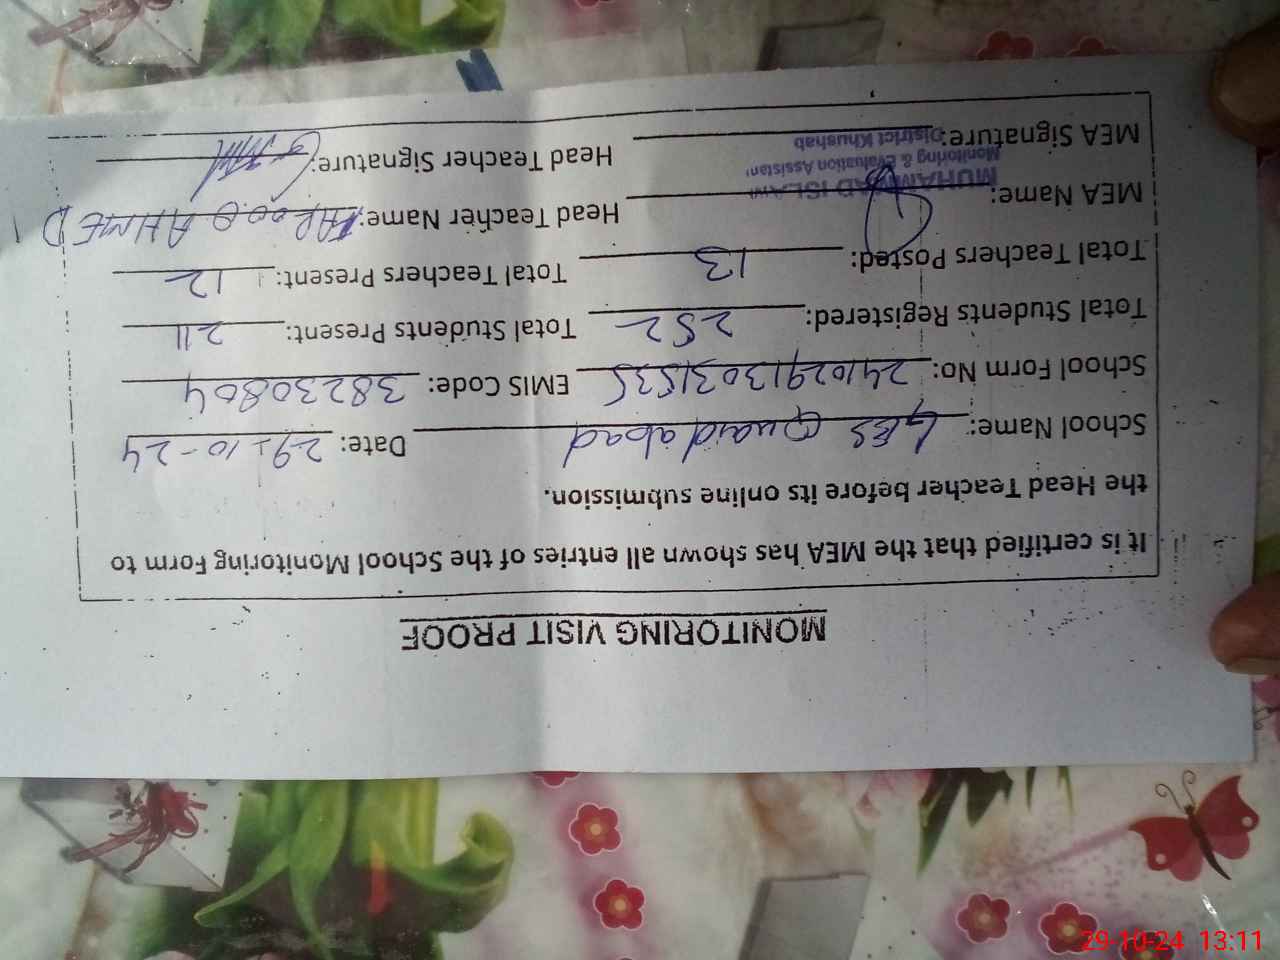 MONITORING VISIT PROOF
It is certified that the MEA has shown all entries of the School Monitoring Form to
the Head Teacher before its online submission.
School Name: GES Quaid abad Date: 29-10-24
School Form No: 24102913031535 EMIS Code: 38230804
Total Students Registered: 252 Total Students Present: 211
Total Teachers Posted: 13 Total Teachers Present: 12
MEA Name: MUHAMMAD ISLAM Head Teacher Name: FAROOQ AHMED
Monitoring & Evaluation Assistant
MEA Signature: District Khushab Head Teacher Signature:
29-10-24 13:11